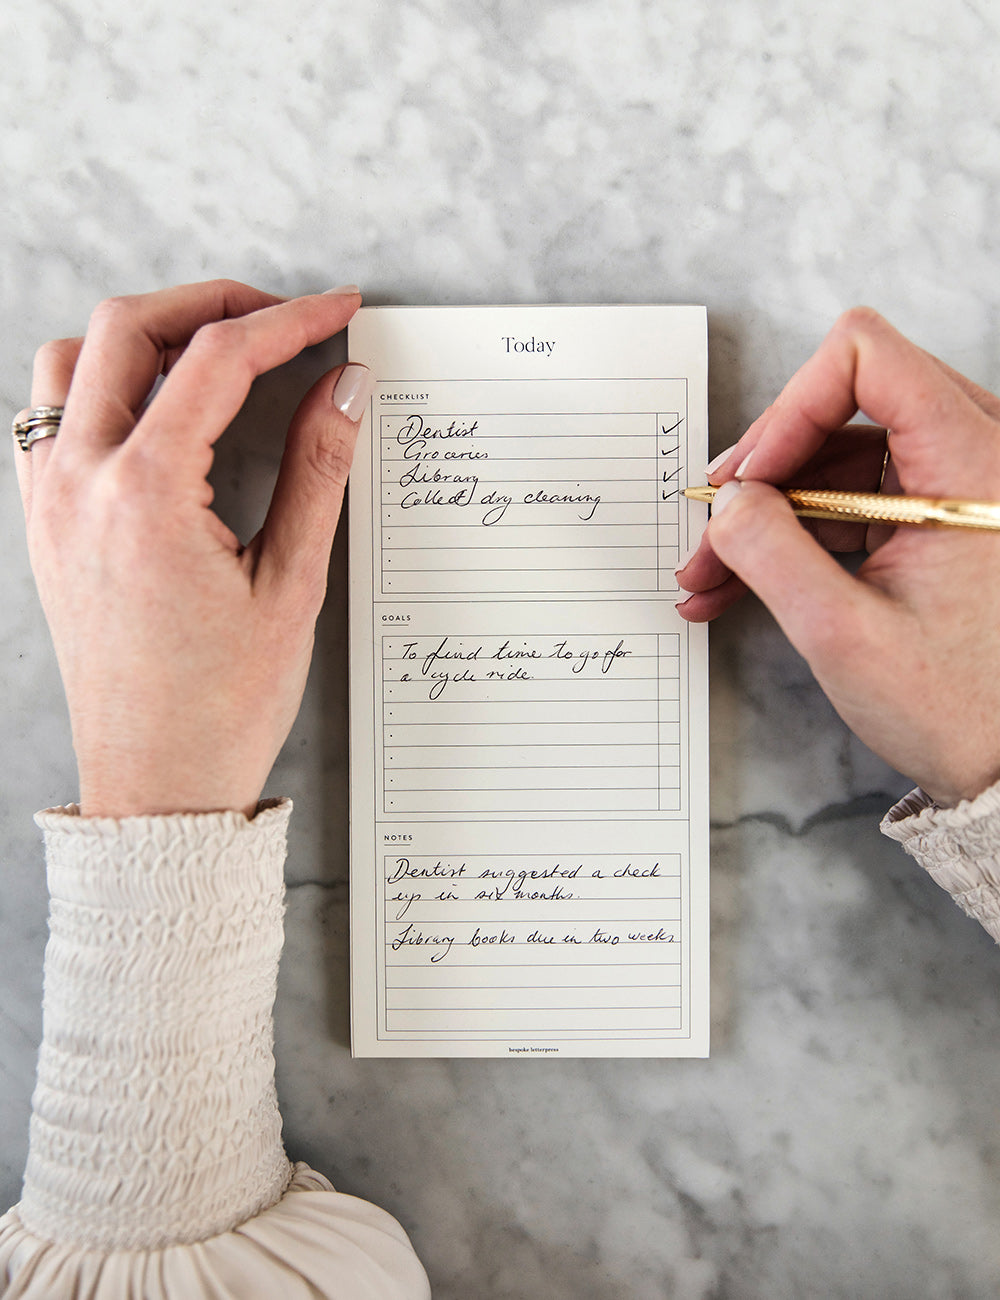 Today
CHECKLIST
Dentist
Groceries
Library
Collect dry cleaning
GOALS
To find time to go for
a cycle ride.
NOTES
Dentist suggested a check
up in six months.
Library books due in two weeks
bespoke letterpress